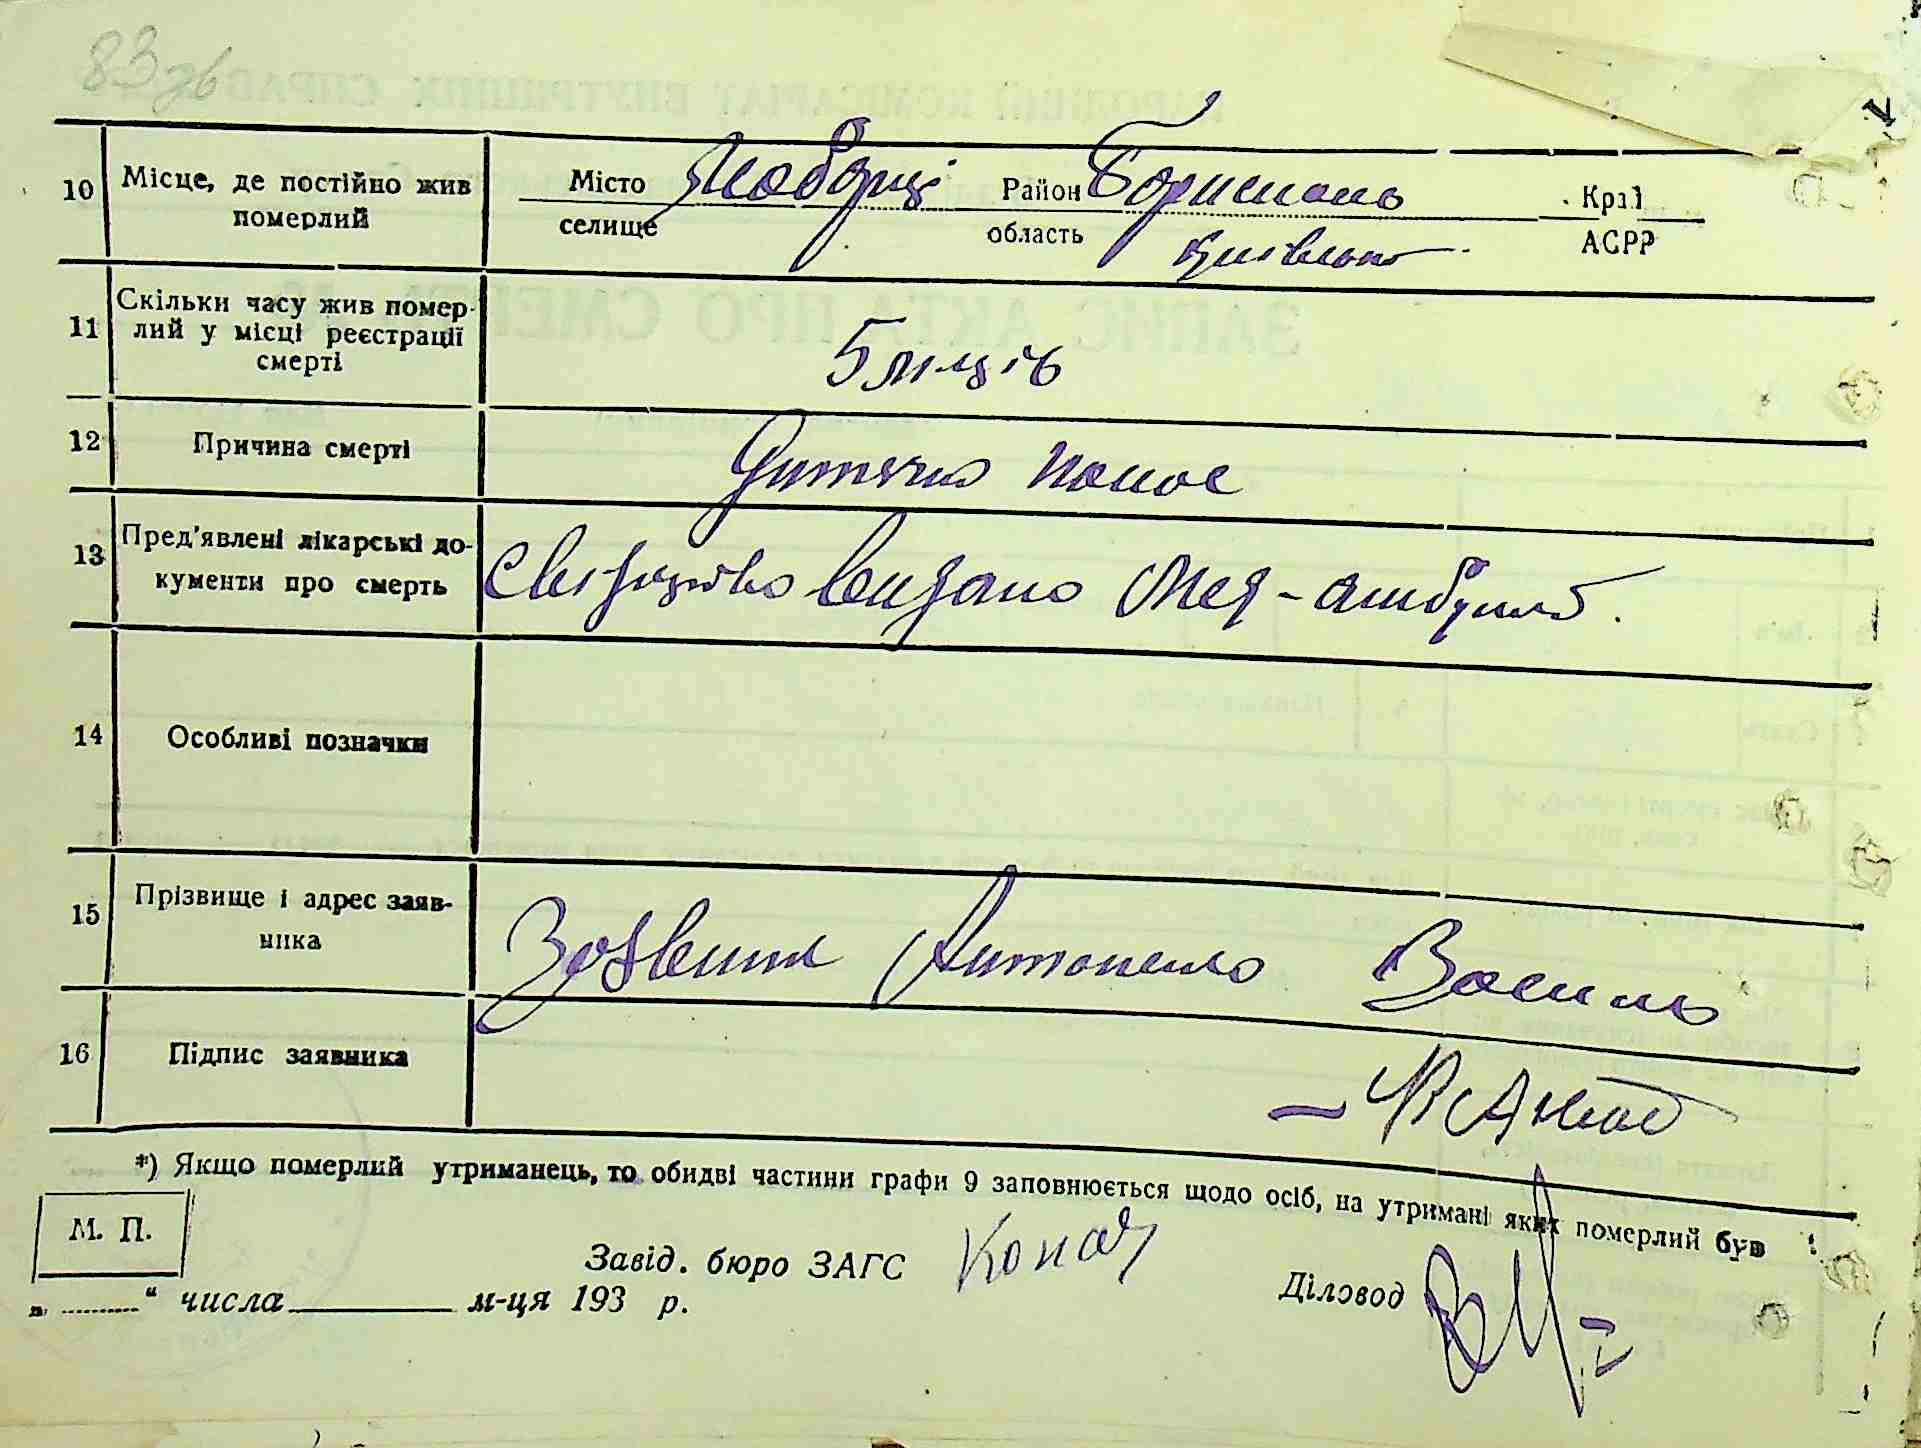 83 зв
10 Місце, де постійно жив померлий Місто селище Любарці Район Бориспіль область Київська Край АСРР
11 Скільки часу жив помер-
лий у місці реєстрації
смерті 5 м-ців
12 Причина смерті Дитячий понос
13 Пред'явлені лікарські до-
кументи про смерть Свідоцтво видано Мед-амбул.
14 Особливі позначки
15 Прізвище і адрес заяв-
ника Заявник Антоненко Василь
16 Підпис заявника
*) Якщо померлий утриманець, то обидві частини графи 9 заповнюється щодо осіб, на утримані яких померлий був
М. П.
Завід. бюро ЗАГС
Діловод
„ ........ “ числа м-ця 193 р.